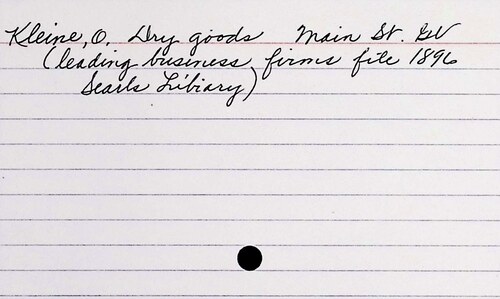 Kleine, O. Dry goods Main St. GV
(leading business firms file 1896
Searls Library)